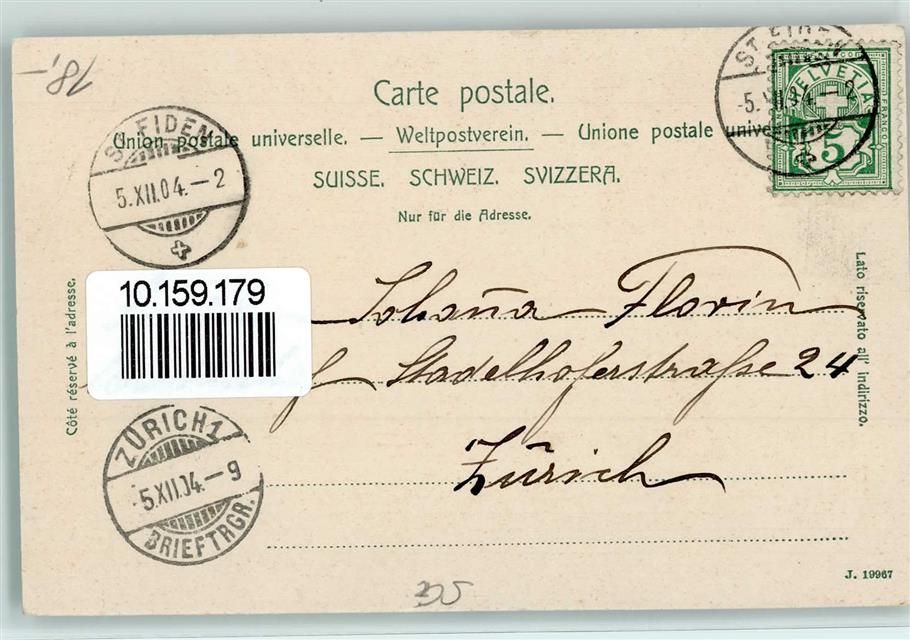 18,-
Carte postale.
Union postale universelle. — Weltpostverein. — Unione postale universale
SUISSE. SCHWEIZ. SVIZZERA.
Nur für die Adresse.
ST. FIDEN
5.XII.04.—2
ST. FIDEN
-5.XII.04.—2
HELVETIA
FRANCO
5
Côté réservé à l'adresse.
Lato riservato all' indirizzo.
10.159.179
Johaña Florin
Stadelhoferstraße 24
Zürich
ZÜRICH 1
-5.XII.04.—9
BRIEFTRGR.
J. 19967